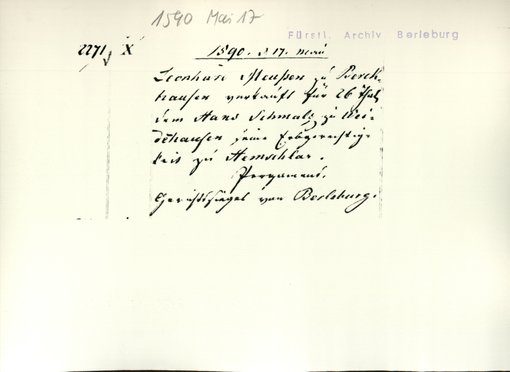 1590 Mai 17
Fürstl. Archiv Berleburg
2271 X 1590. d 17. Mai
Leonhard Meußen zu Berck-
hausen verkauft für 26 Thal.
dem Hans Schmalz zu Wei-
dehausen seine Erbgerechtig-
keit zu Hemschlar.
Pergament.
Gerichtssiegel von Berleburg.